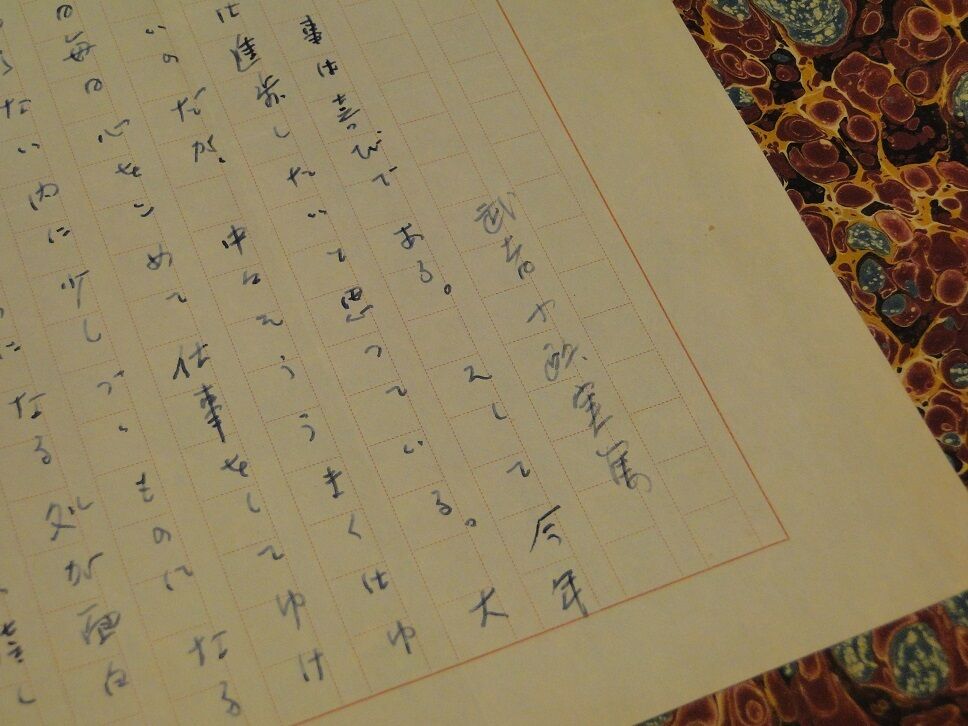 武者小路実篤
事は喜びである。そして今年
は進歩したいと思っている。大
いのだが、中々そううまくはゆ
日毎日心をこめて仕事をしてゆけ
らない内に少しづゝものになる
になる処が面白
し